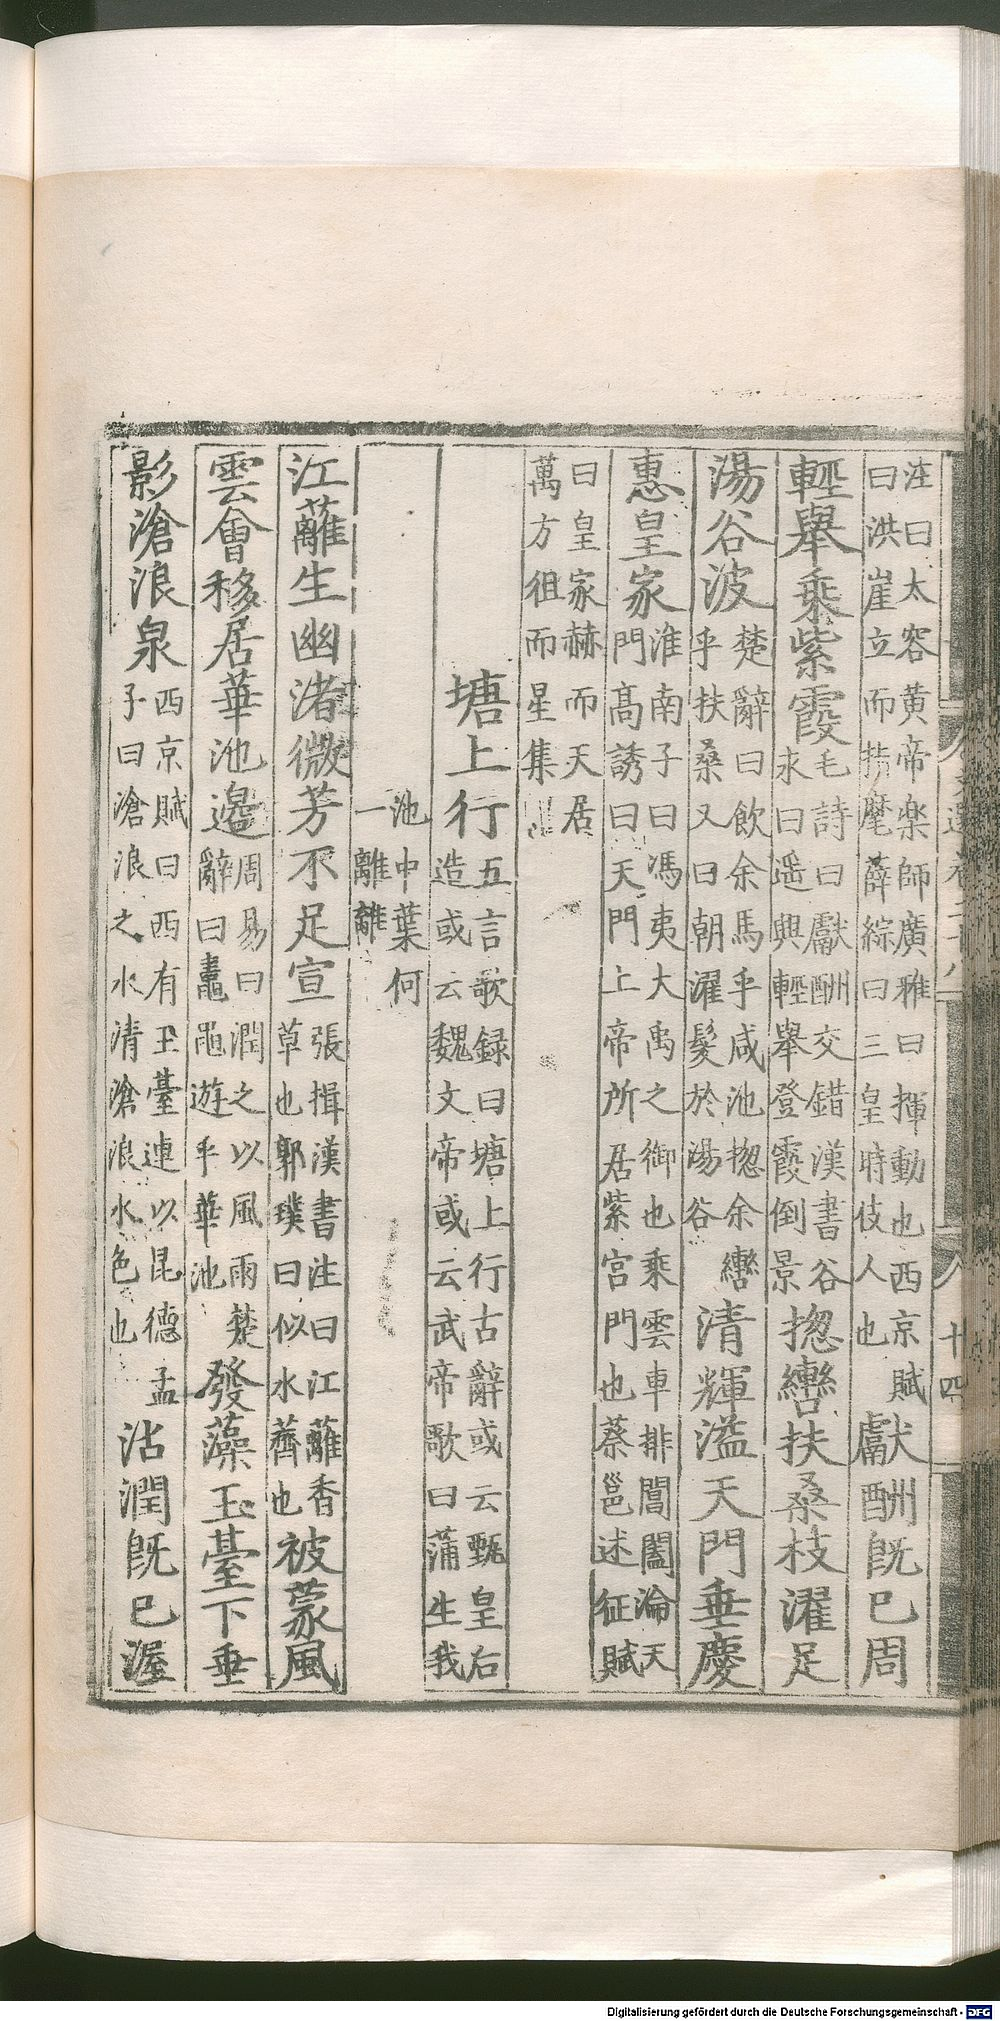 注曰太容黃帝樂師廣雅曰揮動也西京賦
曰洪崖立而指麾薛綜曰三皇時伎人也
獻酬旣巳周
輕舉乘紫霞
毛詩曰獻酬交錯漢書谷
永曰遥興輕舉登霞倒景
揔轡扶桑枝濯足
湯谷波
楚辭曰飲余馬乎咸池揔余轡
乎扶桑又曰朝濯髮於湯谷
清輝溢天門垂慶
惠皇家
淮南子曰馮夷大禹之御也乘雲車排閶闔淪天
門高誘曰天門上帝所居紫宮門也蔡邕述征賦
曰皇家赫而天居
萬方徂而星集
塘上行
五言歌録曰塘上行古辭或云甄皇后
造或云魏文帝或云武帝歌曰蒲生我
池中葉何
一離離
江蘺生幽渚微芳不足宣
張揖漢書注曰江蘺香
草也郭璞曰似水薺也
被蒙風
雲會移居華池邊
周易曰潤之以風雨楚
辭曰鼃黽遊乎華池
發藻玉臺下垂
影滄浪泉
西京賦曰西有玉臺連以昆德孟
子曰滄浪之水清滄浪水色也
沾潤旣巳渥
十四
Digitalisierung gefördert durch die Deutsche Forschungsgemeinschaft - DFG